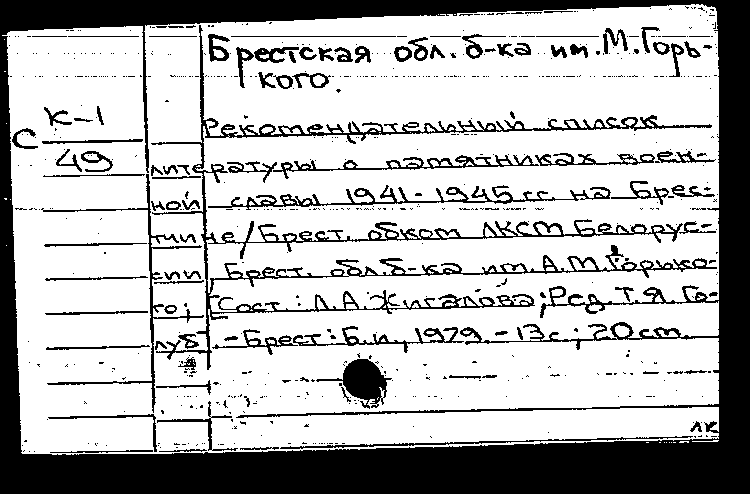 Брестская обл. б-ка им. М. Горь-
кого.
К-1
С
49
Рекомендательный список
литературы о памятниках воен-
ной славы 1941-1945 гг. на Брес-
тчине / Брест. обком ЛКСМ Белорус-
сии, Брест. обл. б-ка им. А.М. Горько-
го; [Сост.: Л.А. Жигалова; Ред. Т.Я. Го-
луб]. - Брест: Б.и., 1979. - 13 с.; 20 см.
ЛК